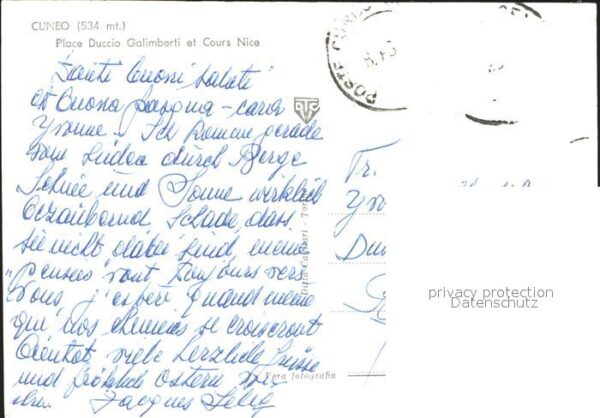 CUNEO (534 mt.)
Place Duccio Galimberti et Cours Nice
Tanti buoni saluti
et buona pasqua - cara
Yvonne - Ich komme gerade
vom Süden durch Berge
Schnee und Sonne wirklich
bezaubernd, schade, dass
sie nicht dabei sind, meine
"pensées" vont toujours vers
vous, j'espère quand même
que nos chemins se croiseront
bientôt, viele herzliche Grüsse
und fröhliche Ostern
Jacques
Fr.
Vera fotografia
POSTE
privacy protection
Datenschutz